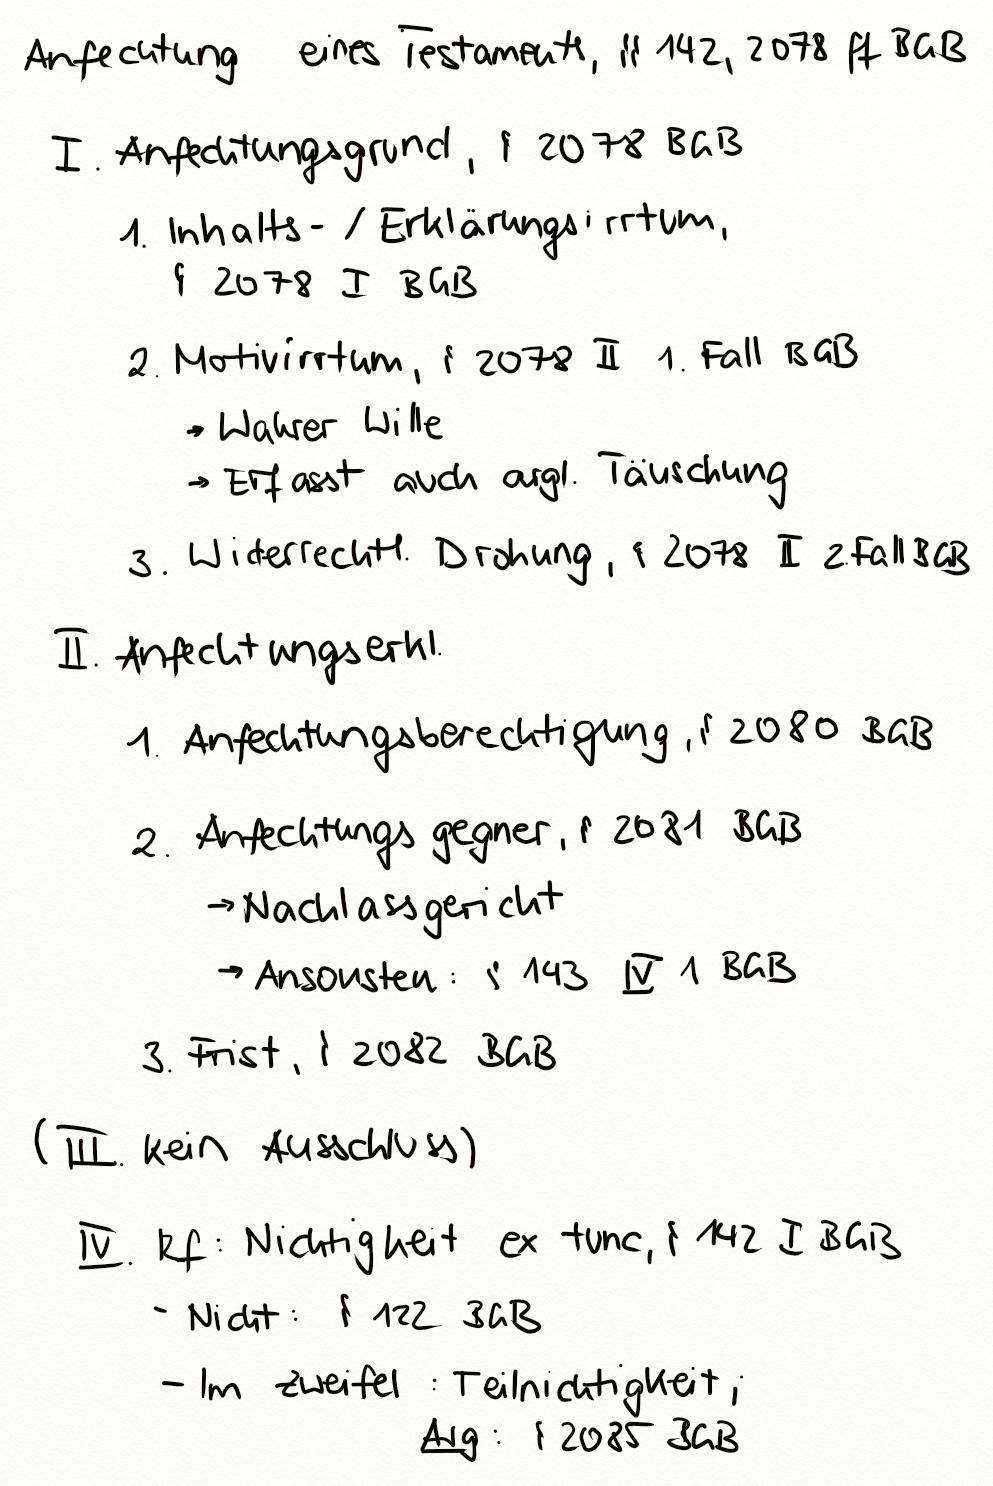 Anfechtung eines Testaments, §§ 142, 2078 ff BGB
I. Anfechtungsgrund, § 2078 BGB
1. Inhalts- / Erklärungsirrtum,
§ 2078 I BGB
2. Motivirrtum, § 2078 II 1. Fall BGB
→ Wahrer Wille
→ Erfasst auch argl. Täuschung
3. Widerrechtl. Drohung, § 2078 II 2. Fall BGB
II. Anfechtungserkl.
1. Anfechtungsberechtigung, § 2080 BGB
2. Anfechtungsgegner, § 2081 BGB
→ Nachlassgericht
→ Ansonsten: § 143 IV 1 BGB
3. Frist, § 2082 BGB
(III. Kein Ausschluss)
IV. Rf: Nichtigkeit ex tunc, § 142 I BGB
- Nicht: § 122 BGB
- Im Zweifel: Teilnichtigkeit;
Arg: § 2085 BGB